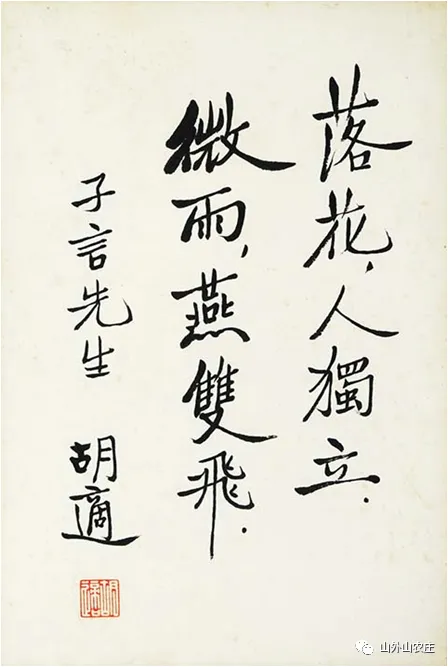 落花，人獨立．
微雨，燕雙飛．
子言先生
胡適
山外山农庄